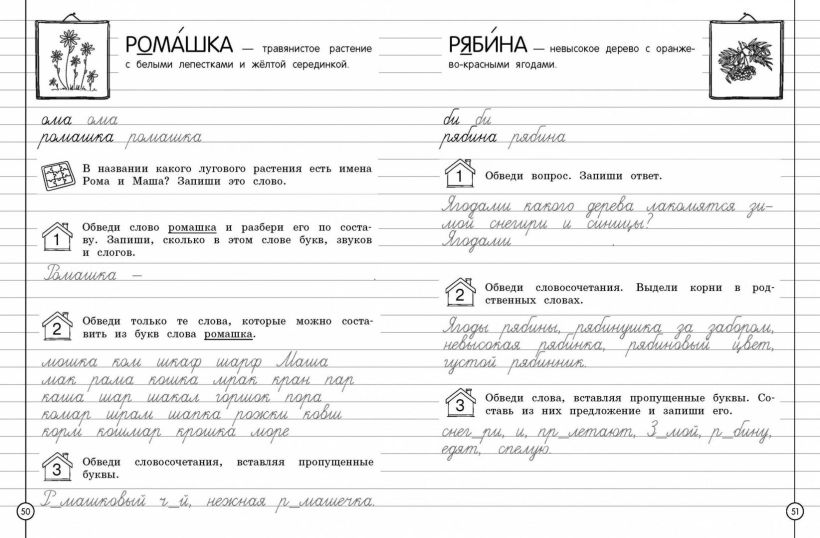 РОМА́ШКА — травянистое растение
с белыми лепестками и жёлтой серединкой.
ома ома
ромашка ромашка
В названии какого лугового растения есть имена
Рома и Маша? Запиши это слово.
1
Обведи слово ромашка и разбери его по соста-
ву. Запиши, сколько в этом слове букв, звуков
и слогов.
Ромашка — .
2
Обведи только те слова, которые можно соста-
вить из букв слова ромашка.
мошка ком шкаф шарф Маша
мак рама кошка мрак кран пар
каша шар шакал горшок пора
комар шрам шапка рожки ковш
корм кошмар крошка море
3
Обведи словосочетания, вставляя пропущенные
буквы.
Р_машковый ч_й, нежная р_машечка.
50
РЯБИ́НА — невысокое дерево с оранже-
во-красными ягодами.
би би
рябина рябина
1
Обведи вопрос. Запиши ответ.
Ягодами какого дерева лакомятся зи-
мой снегири и синицы?
Ягодами .
2
Обведи словосочетания. Выдели корни в род-
ственных словах.
Ягоды рябины, рябинушка за забором,
невысокая рябинка, рябиновый цвет,
густой рябинник.
3
Обведи слова, вставляя пропущенные буквы. Со-
ставь из них предложение и запиши его.
снег_ри, и, пр_летают, З_мой, р_бину,
едят, спелую.
51